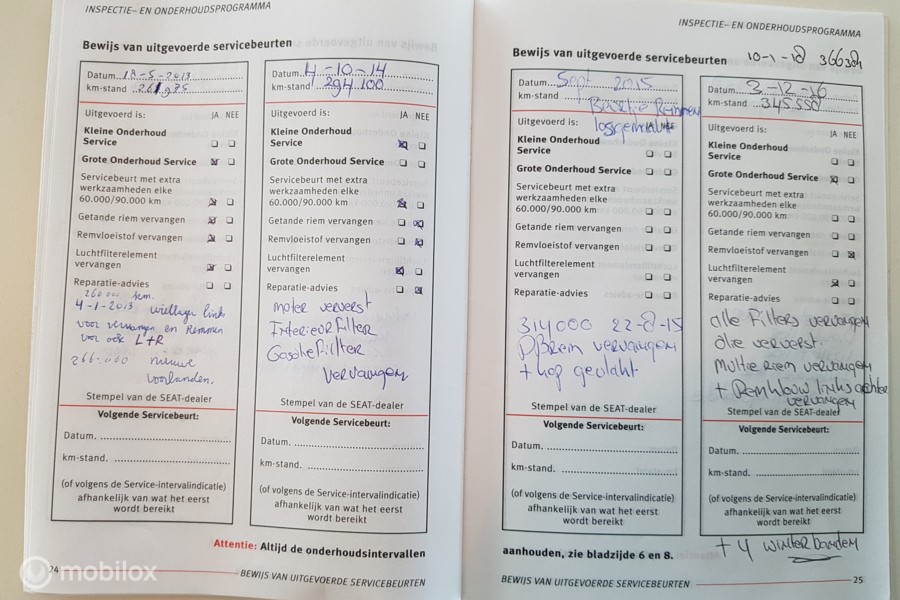 INSPECTIE- EN ONDERHOUDSPROGRAMMA
Bewijs van uitgevoerde servicebeurten
Datum.
km-stand
Uitgevoerd is: JA NEE
Kleine Onderhoud
Service
Grote Onderhoud Service
Servicebeurt met extra
werkzaamheden elke
60.000/90.000 km
Getande riem vervangen
Remvloeistof vervangen
Luchtfilterelement
vervangen
Reparatie-advies
4-1-2013 wiellager links
voor vervangen en Remmen
voor ook L+R
266.000 nieuwe
voorbanden.
Stempel van de SEAT-dealer
Volgende Servicebeurt:
Datum.
km-stand.
(of volgens de Service-intervalindicatie)
afhankelijk van wat het eerst
wordt bereikt
Datum. 4-10-14
km-stand 294 100
Uitgevoerd is: JA NEE
Kleine Onderhoud
Service
Grote Onderhoud Service
Servicebeurt met extra
werkzaamheden elke
60.000/90.000 km
Getande riem vervangen
Remvloeistof vervangen
Luchtfilterelement
vervangen
Reparatie-advies
motor ververst
Interieur filter
vervangen
Stempel van de SEAT-dealer
Volgende Servicebeurt:
Datum.
km-stand.
(of volgens de Service-intervalindicatie)
afhankelijk van wat het eerst
wordt bereikt
Attentie: Altijd de onderhoudsintervallen
24
BEWIJS VAN UITGEVOERDE SERVICEBEURTEN
mobilox
INSPECTIE- EN ONDERHOUDSPROGRAMMA
Bewijs van uitgevoerde servicebeurten
Datum. Sept 2015
km-stand
Remmen
Uitgevoerd is: JA NEE
Kleine Onderhoud
Service
Grote Onderhoud Service
Servicebeurt met extra
werkzaamheden elke
60.000/90.000 km
Getande riem vervangen
Remvloeistof vervangen
Luchtfilterelement
vervangen
Reparatie-advies
314000 22-8-15
vervangen
Stempel van de SEAT-dealer
Volgende Servicebeurt:
Datum.
km-stand.
(of volgens de Service-intervalindicatie)
afhankelijk van wat het eerst
wordt bereikt
Datum. 3-12-16
km-stand 345550
Uitgevoerd is: JA NEE
Kleine Onderhoud
Service
Grote Onderhoud Service
Servicebeurt met extra
werkzaamheden elke
60.000/90.000 km
Getande riem vervangen
Remvloeistof vervangen
Luchtfilterelement
vervangen
Reparatie-advies
alle Filters vervangen
olie ververst
Multie riem vervangen
links achter
vervangen
Stempel van de SEAT-dealer
Volgende Servicebeurt:
Datum.
km-stand.
(of volgens de Service-intervalindicatie)
afhankelijk van wat het eerst
wordt bereikt
+ 4 winterbanden
aanhouden, zie bladzijde 6 en 8.
BEWIJS VAN UITGEVOERDE SERVICEBEURTEN
25